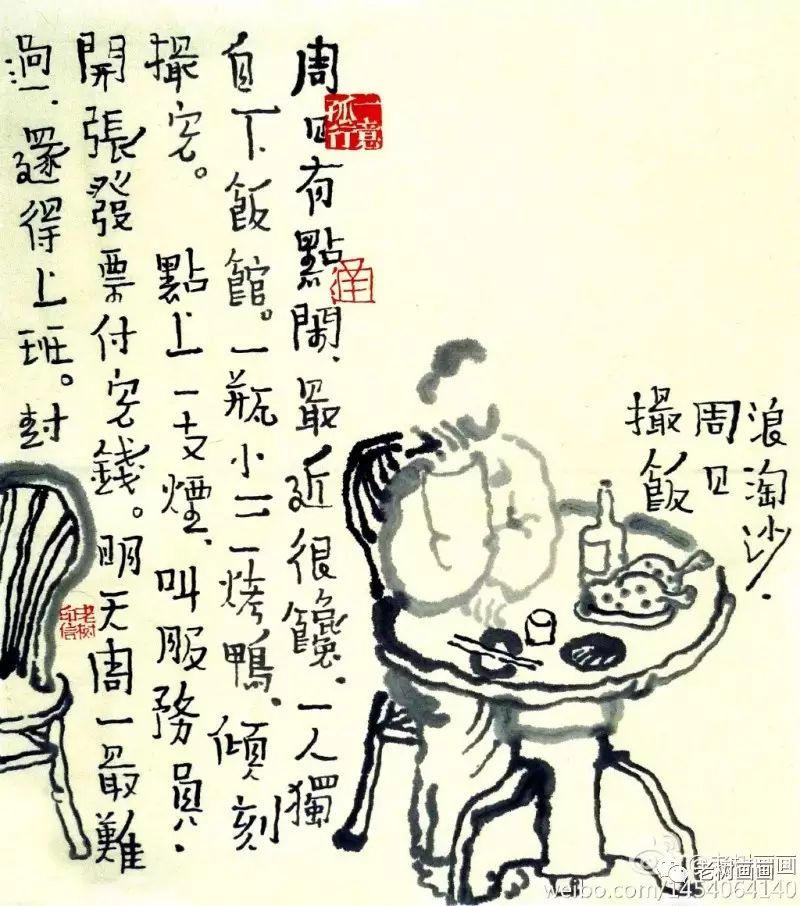 浪淘沙.
周日
撮飯
周日有點閑、最近很饞、一人獨
自下飯館。一瓶小二一烤鴨、傾刻
撮完。 點上一支煙、叫服務員.
開張發票付完錢。明天周一最難
過、還得上班。封
一意孤行
老树印信
@老树画画
老树画画
weibo.com/1454064140